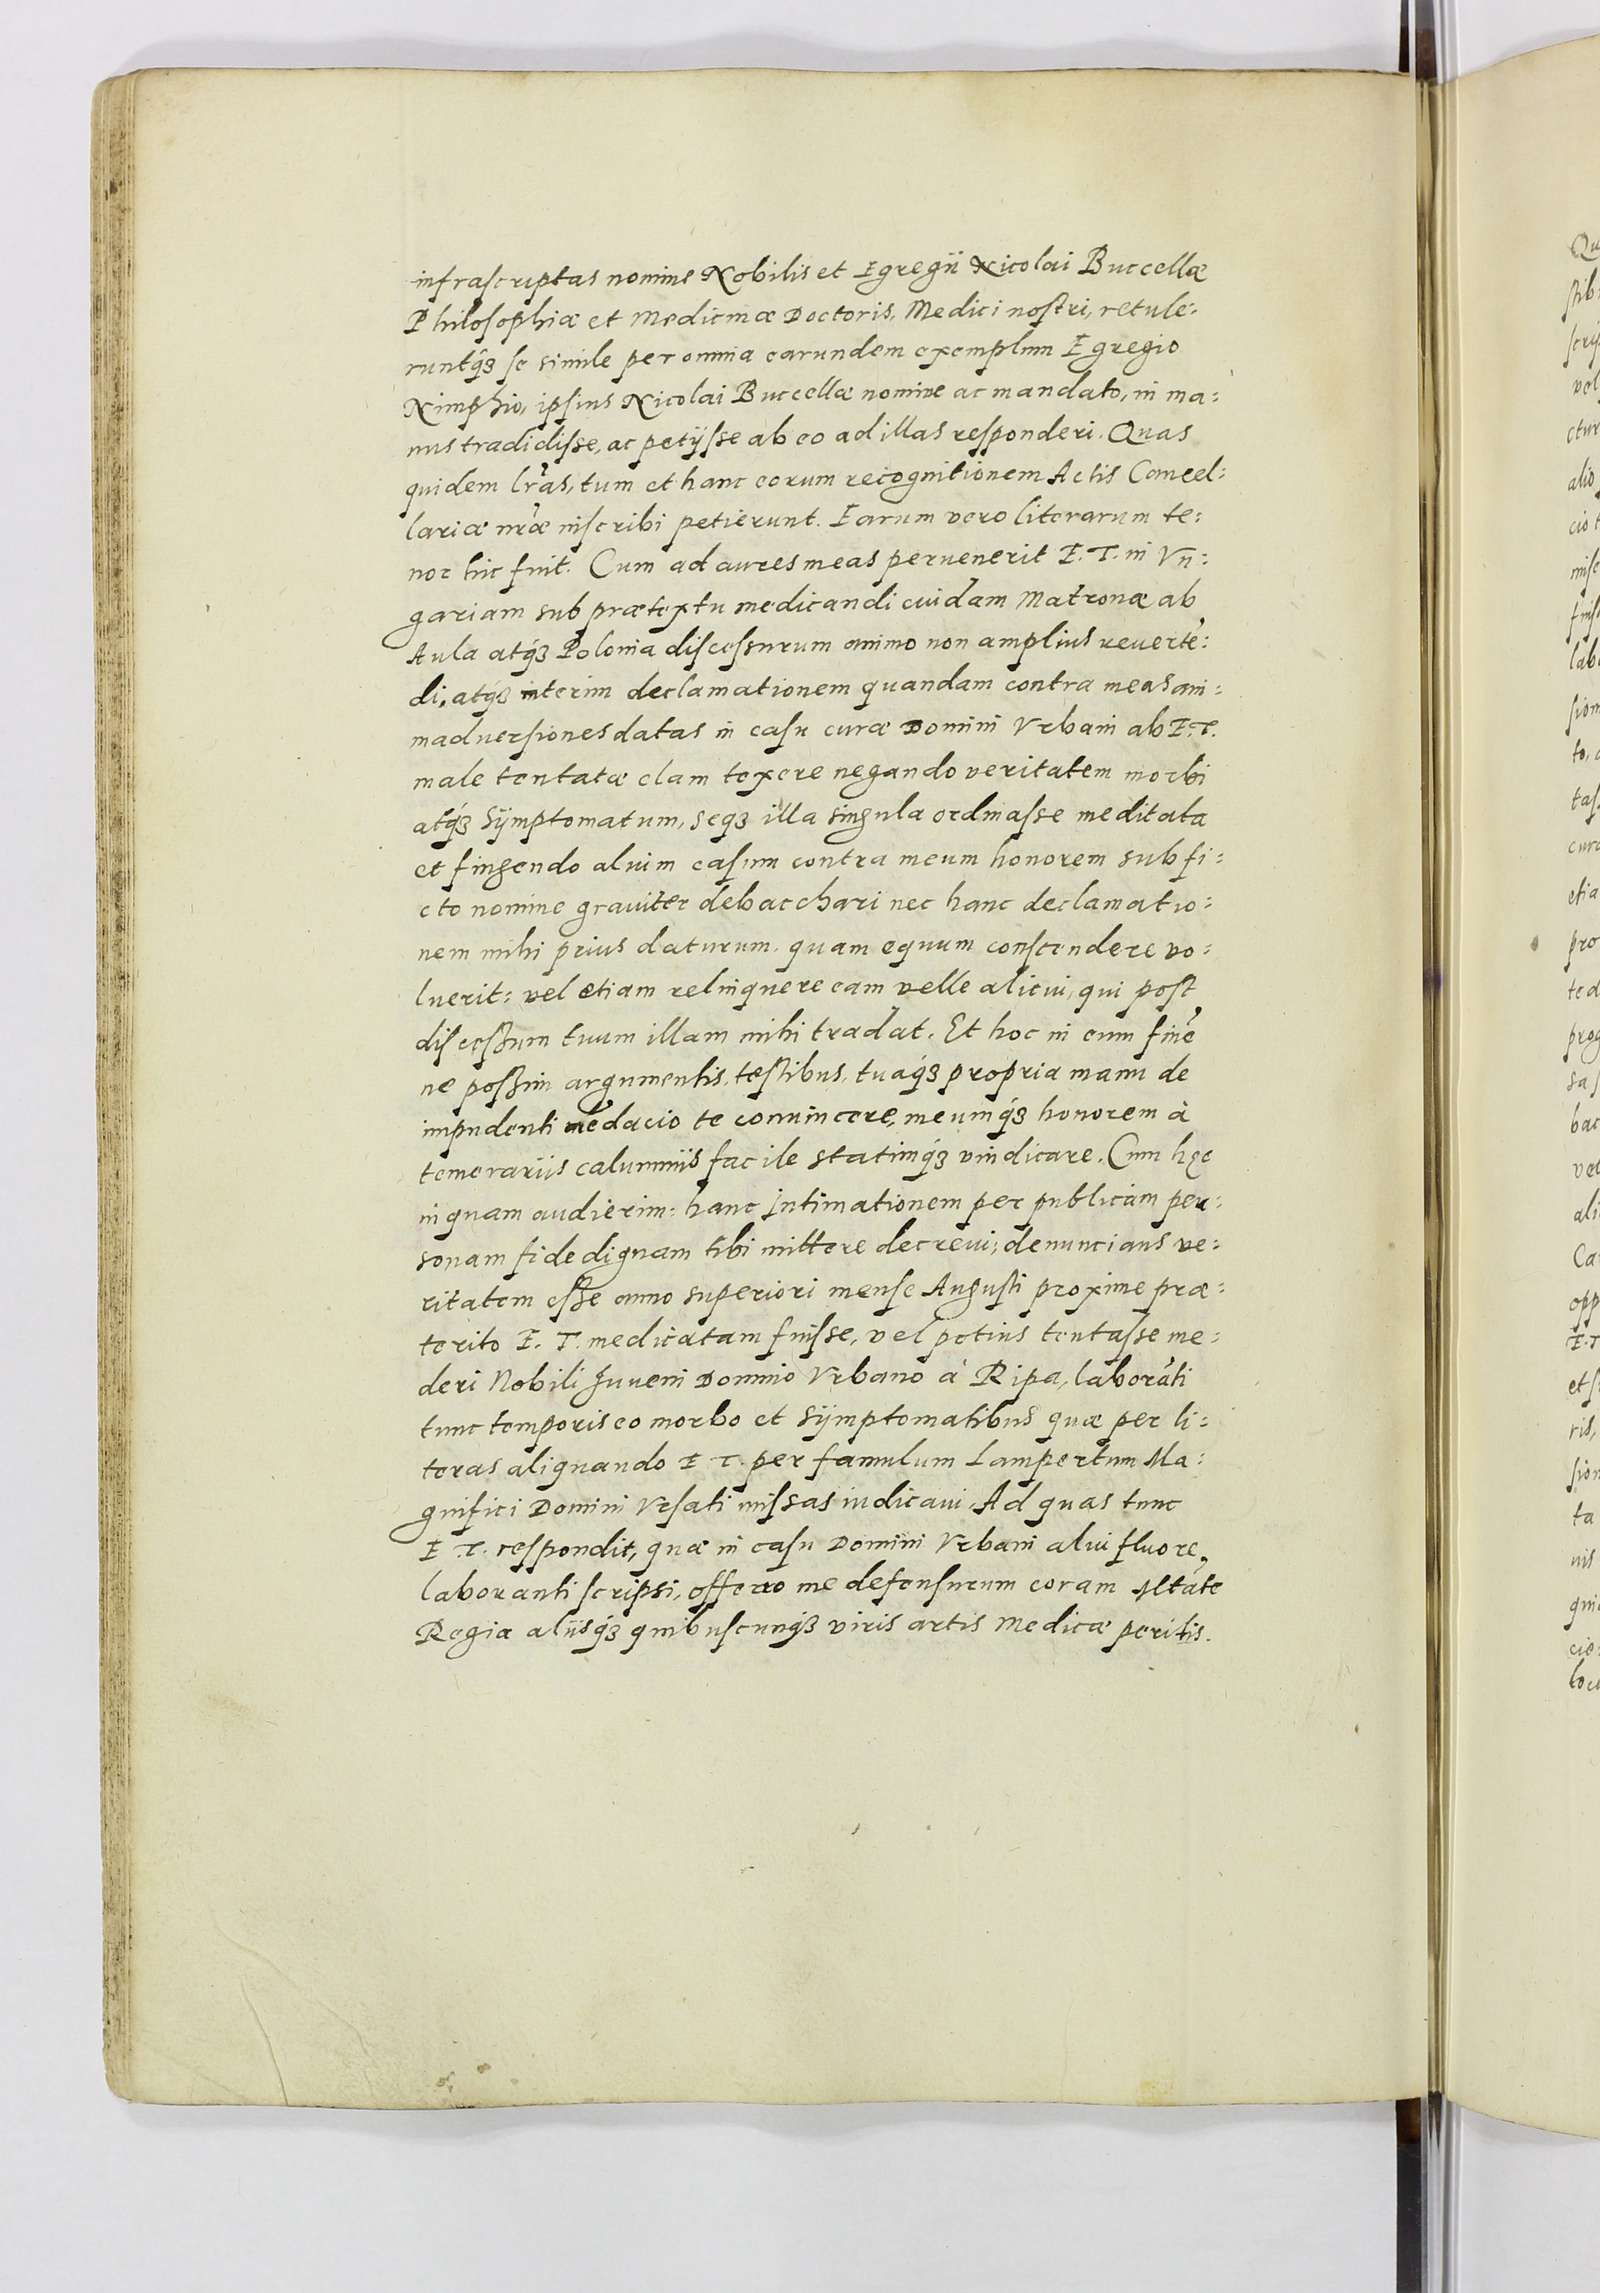 infrascriptas nomine Nobilis et Egregii Nicolai Buccellæ
Philosophiæ et Medicinæ Doctoris, Medici nostri, retule:
runtq́ꝫ se simile per omnia earundem exemplum Egregio
Nimphio, ipsius Nicolai Buccellæ nomine ac mandato, in ma:
nus tradidisse, ac petijsse ab eo ad illas responderi. Quas
quidem lr̃as, tum et hanc eorum recognitionem Actis Cancel:
lariæ nr̃æ inscribi petierunt. Earum vero literarum te:
nor hic fuit. Cum ad aures meas peruenerit E. T. in Vn:
gariam sub prætextu medicandi cuidam Matronæ ab
Aula atq́ꝫ Polonia discessurum animo non amplius reuertẽ:
di, atq́ꝫ interim declamationem quandam contra meas ani:
maduersiones datas in casu curæ Domini Vrbani ab E. T.
male tentatæ clam texere negando veritatem morbi
atq́ꝫ sÿmptomatum, seqꝫ illa singula ordinasse meditata
et fingendo alium casum contra meum honorem sub fi:
cto nomine grauiter debacchari nec hanc declamatio:
nem mihi prius daturum, quam equum conscendere vo:
luerit: vel etiam relinquere eam velle alicui, qui post
discessum tuum illam mihi tradat. Et hoc in eum finẽ
ne possim argumentis, testibus, tuaq́ꝫ propria manu de
impudenti mẽdacio te conuincere, meumq́ꝫ honorem à
temerariis calumniis facile statimq́ꝫ vindicare. Cum hęc
inquam audierim: hanc Intimationem per publicam per:
sonam fide dignam tibi mittere decreui; denuncians ve:
ritatem esse anno superiori mense Augusti proxime præ:
terito E. T. medicatam fuisse, vel potius tentasse me:
deri Nobili Juueni Domino Vrbano à Ripa, laborãti
tunc temporis eo morbo et sÿmptomatibus quæ per li:
teras aliquando E T. per famulum Lampertum Ma:
gnifici Domini Vrsati missas iudicaui. Ad quas tunc
E. T. respondit, quæ in casu Domini Vrbani alui fluore
laboranti scripsi, offero me defensurum coram Mtãte
Regia aliisq́ꝫ quibuscunq́ꝫ viris artis Medicæ peritis.